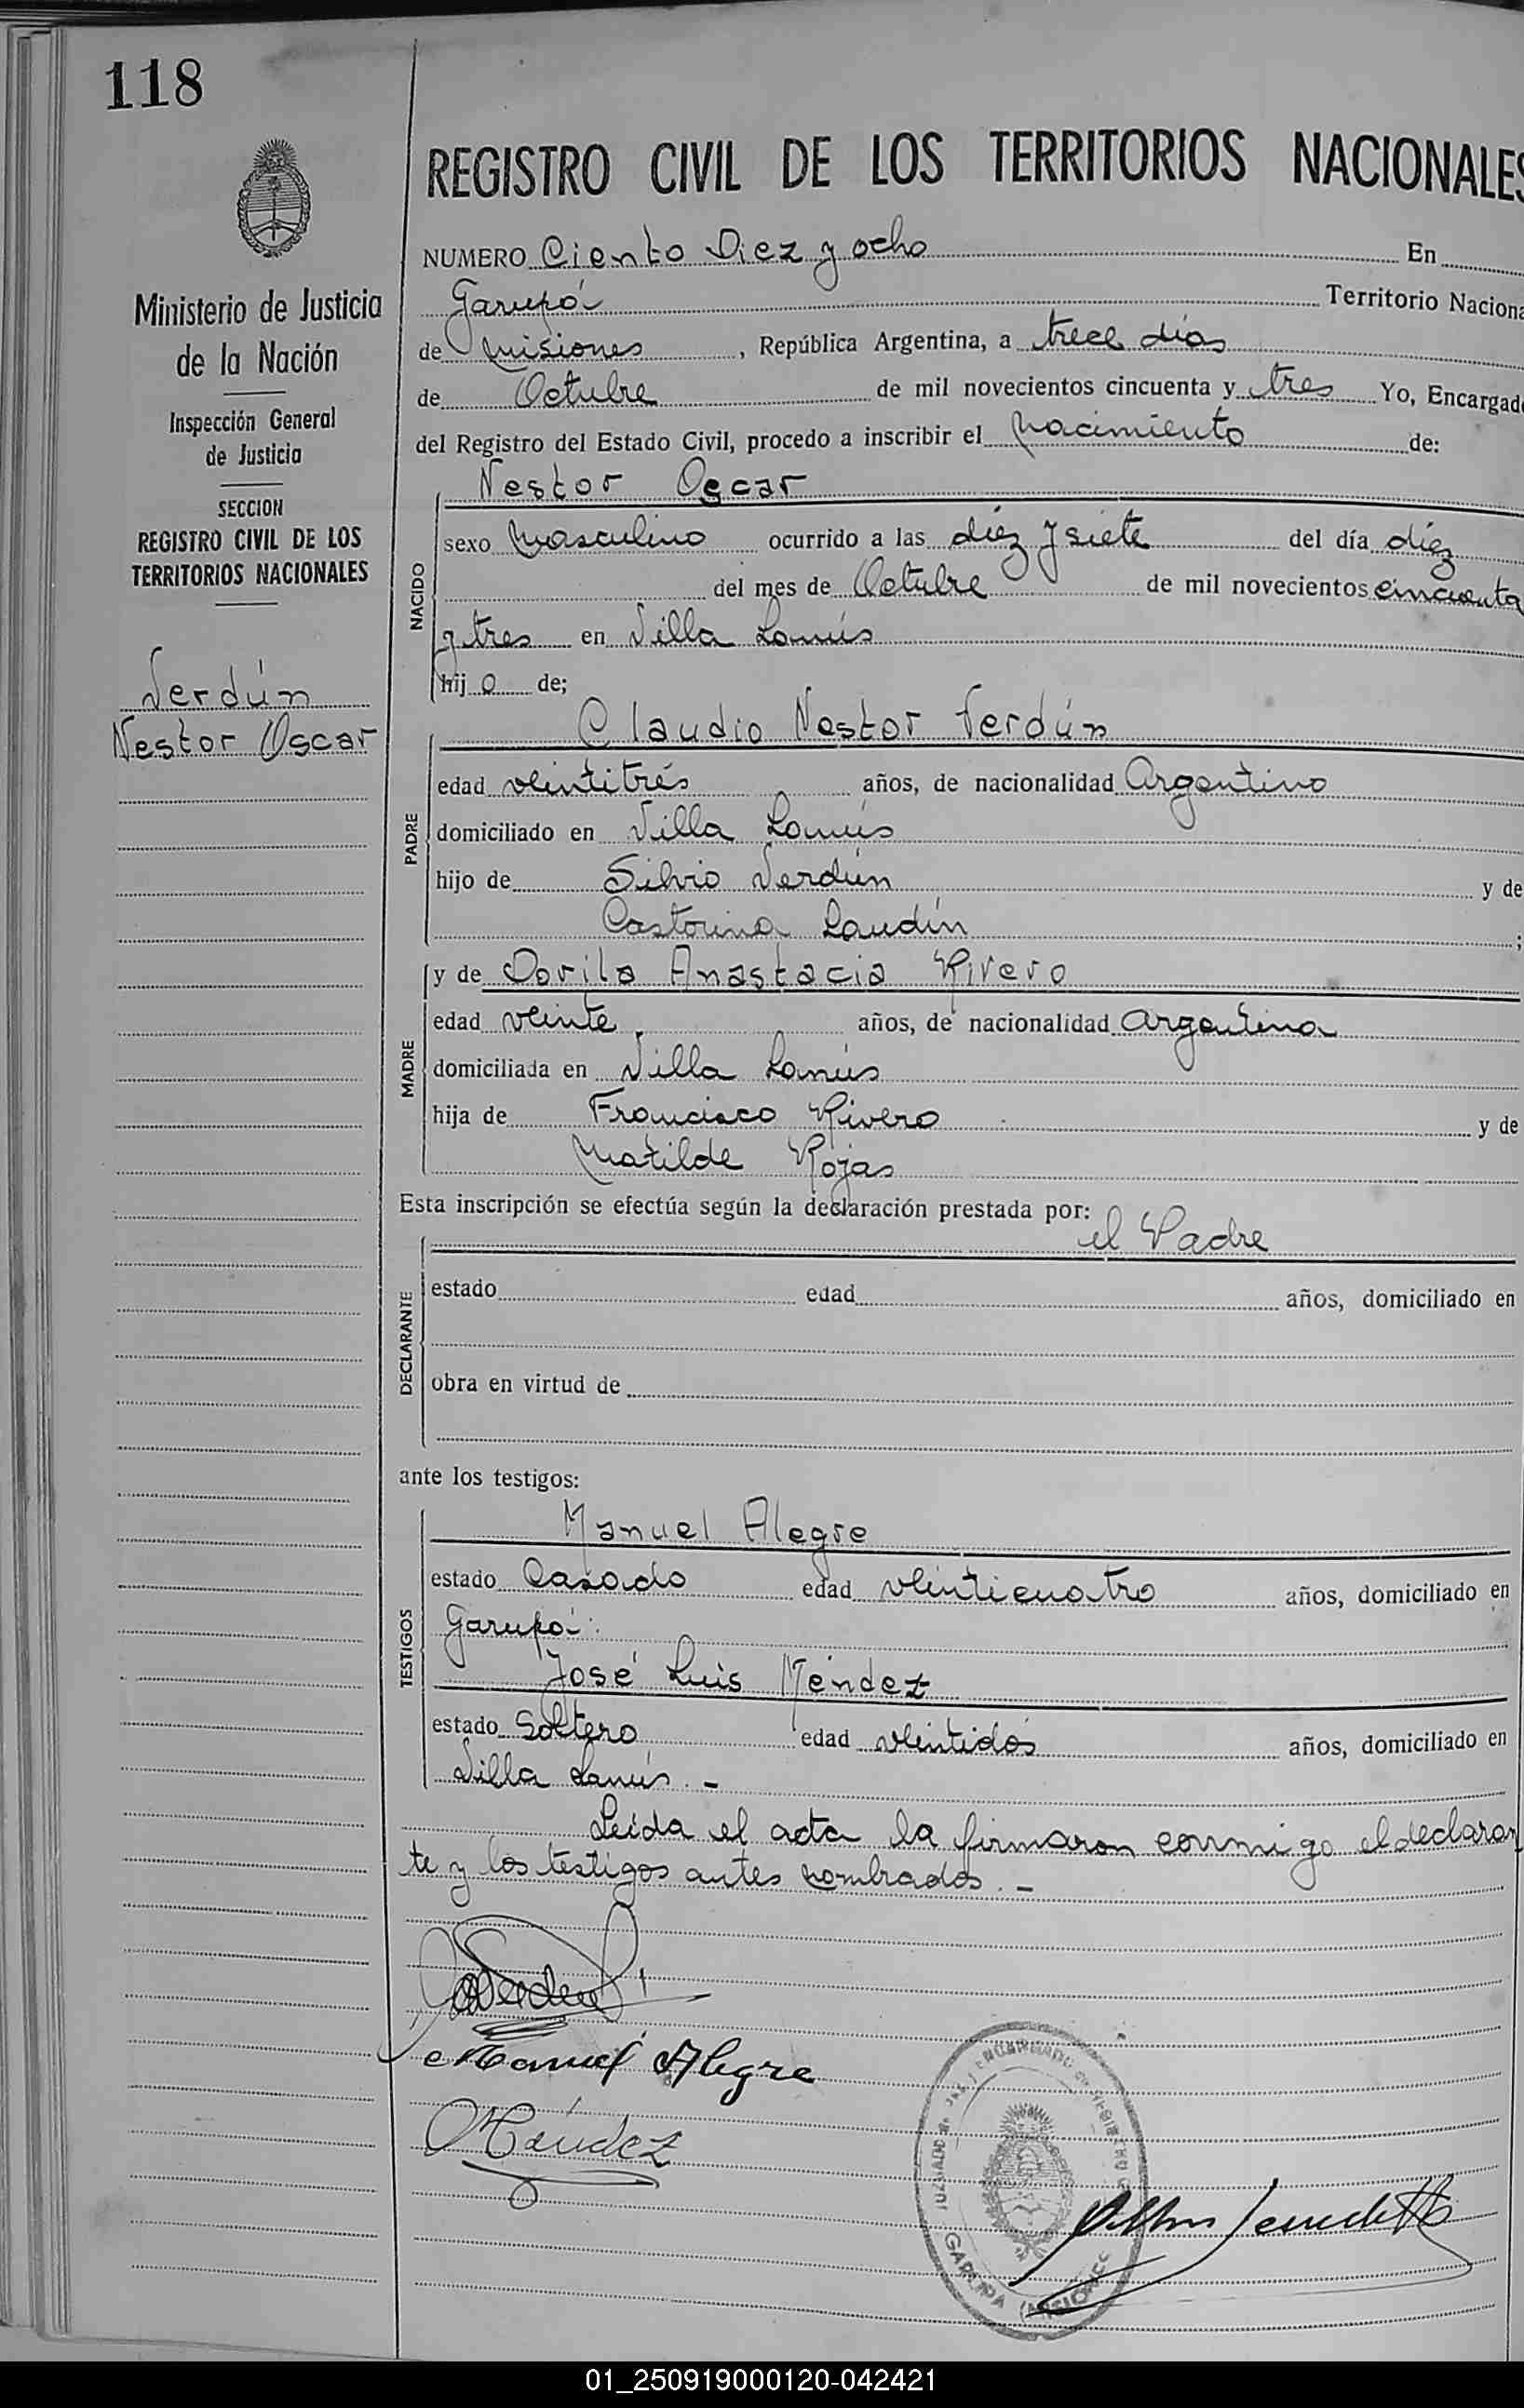 118
REGISTRO CIVIL DE LOS TERRITORIOS NACIONALES
NUMERO Ciento Diez y ocho En
Garupá Territorio Naciona
de Misiones, República Argentina, a trece días
de Octubre de mil novecientos cincuenta y tres Yo, Encargado
del Registro del Estado Civil, procedo a inscribir el Nacimiento de:
Ministerio de Justicia
de la Nación
Inspección General
de Justicia
SECCION
REGISTRO CIVIL DE LOS
TERRITORIOS NACIONALES
Verdún
Nestor Oscar
NACIDO
Nestor Oscar
sexo Masculino ocurrido a las diez y siete del día diez
del mes de Octubre de mil novecientos cincuenta
y tres en Villa Lanús
hijo de;
PADRE
Claudio Nestor Verdún
edad veintitrés años, de nacionalidad Argentino
domiciliado en Villa Lanús
hijo de Silvio Verdún y de
Castorina Landín ;
MADRE
y de Dorila Anastacia Rivero
edad veinte años, de nacionalidad argentina
domiciliada en Villa Lanús
hija de Francisco Rivero y de
Matilde Rojas
Esta inscripción se efectúa según la declaración prestada por:
el Padre
DECLARANTE
estado edad años, domiciliado en
obra en virtud de
ante los testigos:
TESTIGOS
Manuel Alegre
estado Casado edad veinticuatro años, domiciliado en
Garupá.
José Luis Méndez
estado Soltero edad veintidós años, domiciliado en
Villa Lanús. -
Leída el acta la firmaron conmigo el declaran
te y los testigos antes nombrados. -
Verdún
Manuel Alegre
Méndez
JUZGADO DE PAZ Y ENCARGADO
GARUPA (MISIONES
01_250919000120-042421